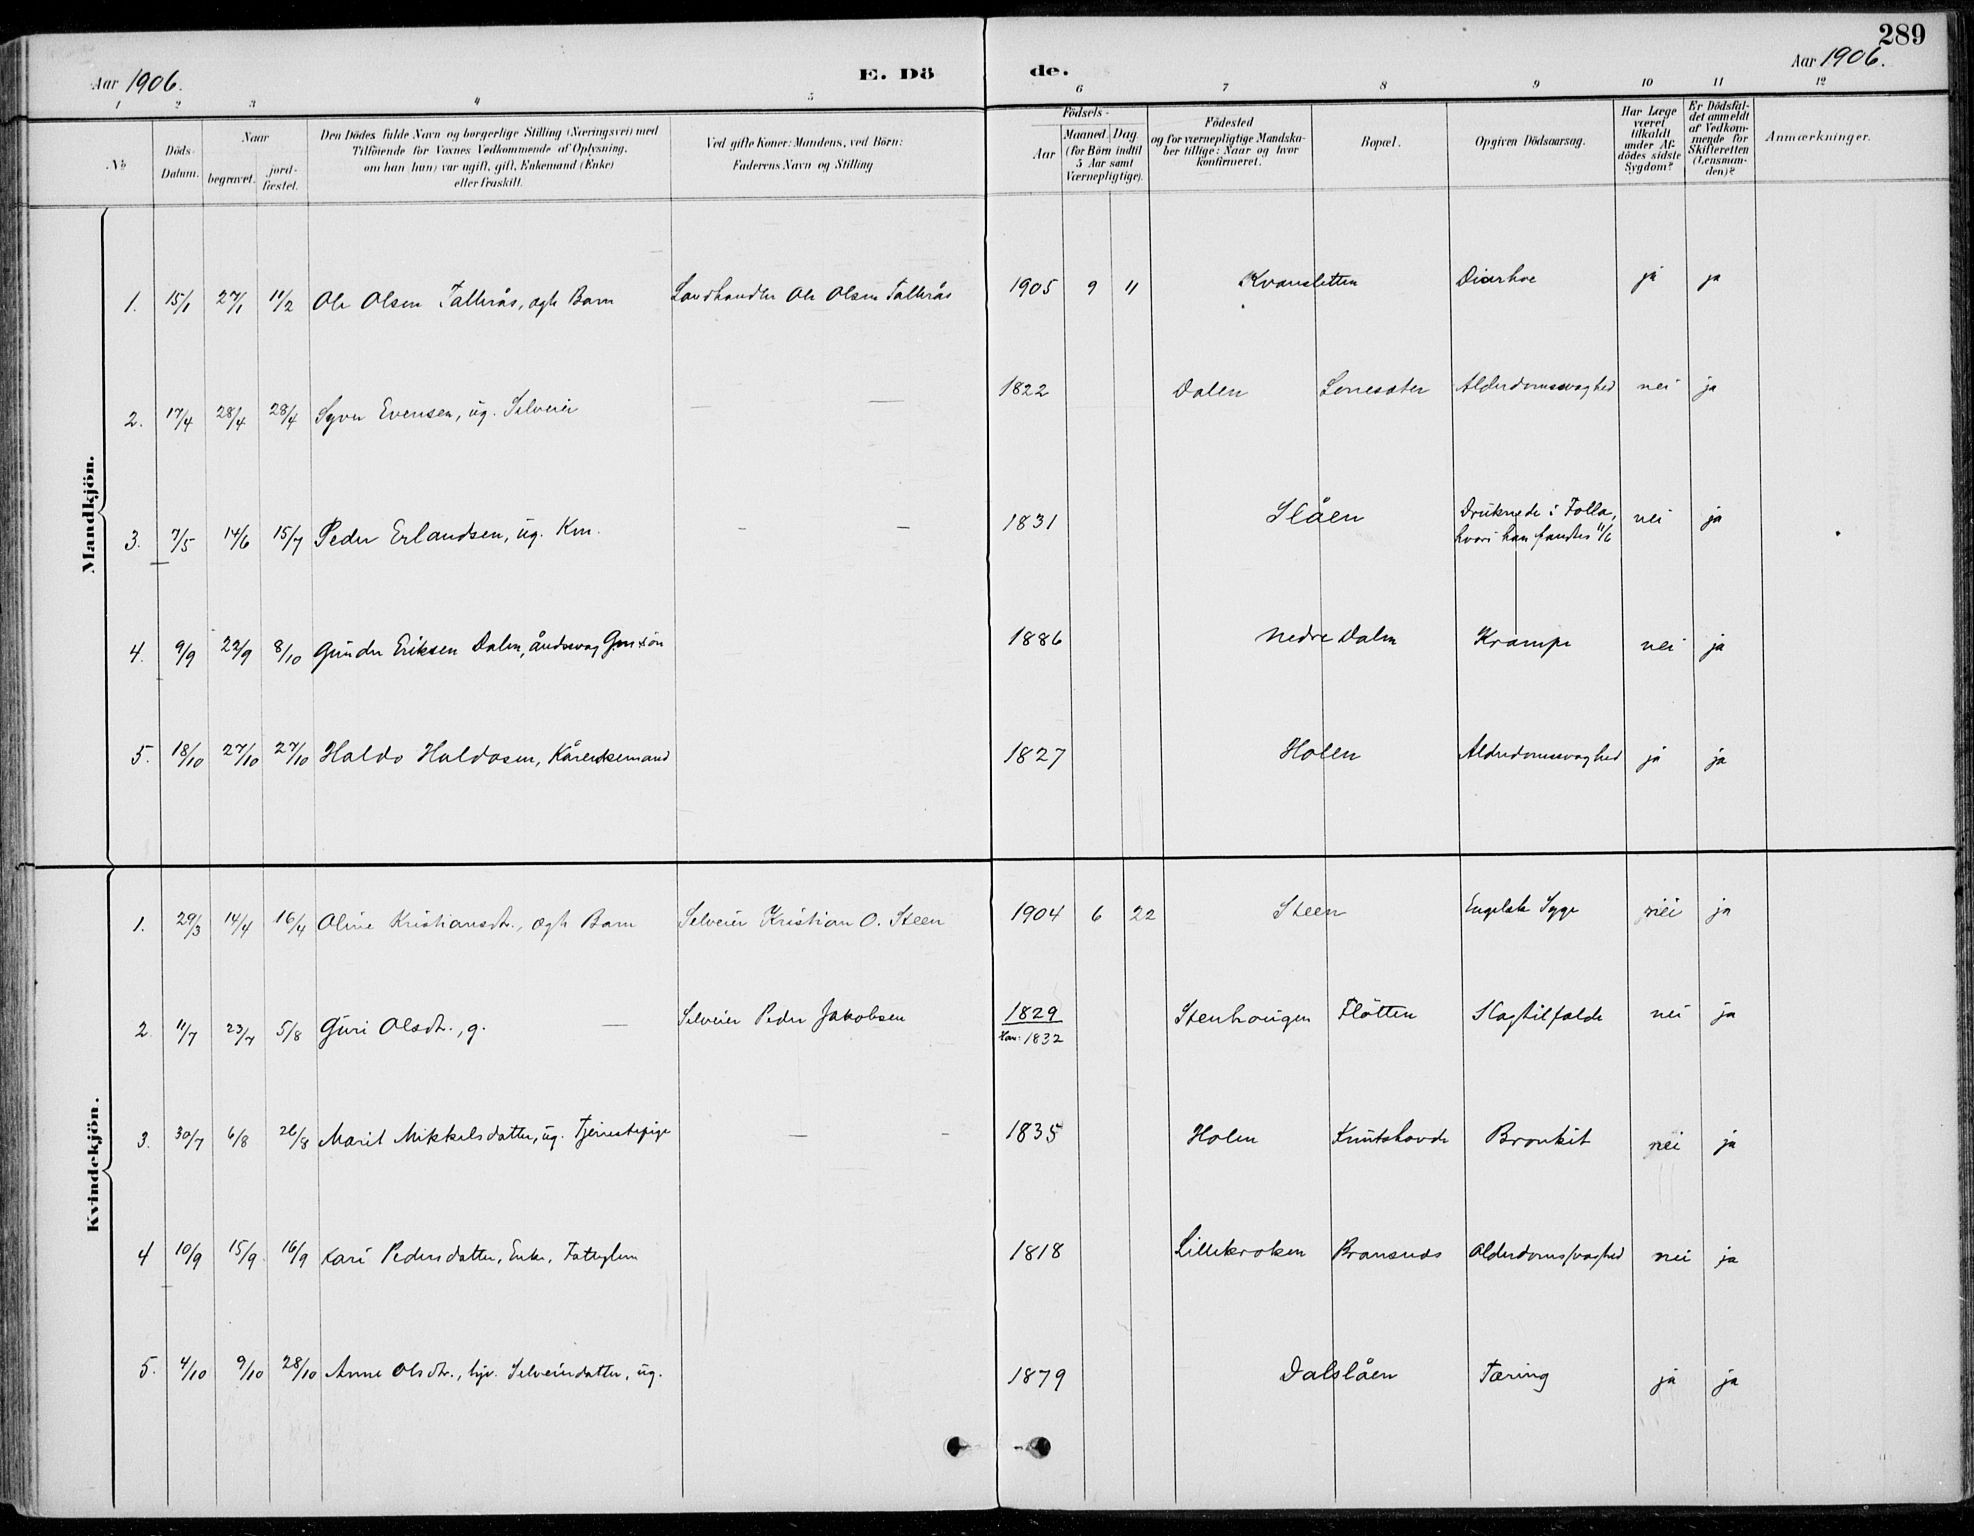 289
Aar 1906. E. Dö de. Aar 1906.
1 2 3 4 5 6 7 8 9 10 11 12
No
Döds-Datum.
Naar
begravet. jordfæstet.
Den Dödes fulde Navn og borgerlige Stilling (Næringsvei) med
Tilföiende for Voxnes Vedkommende af Oplysning,
om han (hun) var ugift, gift, Enkemand (Enke)
eller fraskilt.
Ved gifte Koner: Mandens, ved Börn:
Faderens Navn og Stilling
Födsels-
Aar
Maaned. Dag.
(for Börn indtil
5 Aar samt
Værnepligtige).
Födested
og for værnepligtige Mandska-
ber tillige: Naar og hvor
konfirmeret.
Bopæl.
Opgiven Dödsaarsag.
Har Læge
været
tilkaldt
under Af-
dödes sidste
Sygdom?
Er Dödsfal-
det anmeldt
af Vedkom-
mende for
Skifteretten
(Lensman-
den)?
Anmærkninger.
Mandkjön.
1. 15/1 27/1 11/2 Ole Olsen Tallerås, ægte Barn Landhandler Ole Olsen Tallerås 1905 9 11 Kvansletten Diarhoe ja ja
2. 17/4 28/4 28/4 Syver Evensen, ug. Selveier — — 1822 Dalen Lonesæter Alderdomssvaghed nei ja
3. 7/5 14/6 15/7 Peder Erlandsen, ug. Km. - - 1831 Slåen Druknede i Folla, nei ja
hvori han fandtes 11/6
4. 9/9 22/9 8/10 Gunder Eriksen Dalen, åndssvag 1886 Nedre Dalen Krampe nei ja
5. 18/10 27/10 27/10 Haldo Haldosen, Kårenkemand 1827 Holen Alderdomssvaghed ja ja
Kvindekjön.
1. 29/3 14/4 16/4 Oline Kristiansdt., ægte Barn Selveier Kristian O. Steen 1904 6 22 Steen Engelsk Syge nei ja
2 11/7 23/7 5/8 Guri Olsdt., g. — Selveier Peder Jakobsen 1829 Stenhougen Fløtten Slagtilfælde nei ja
1832
3. 30/7 6/8 26/8 Marit Mikkelsdatter, ug. Tjenestepige — - 1835 Holen Knutshovde Bronkit nei ja
4 10/9 15/9 16/9 Kari Pedersdatter, Enke, Fattiglem 1818 Lillekroken Bransnes Alderdomssvaghed nei ja
5. 4/10 9/10 28/10 Anne Olsdt., hjv. Selveierdatter, ug. 1879 Dalslåen Tæring ja ja